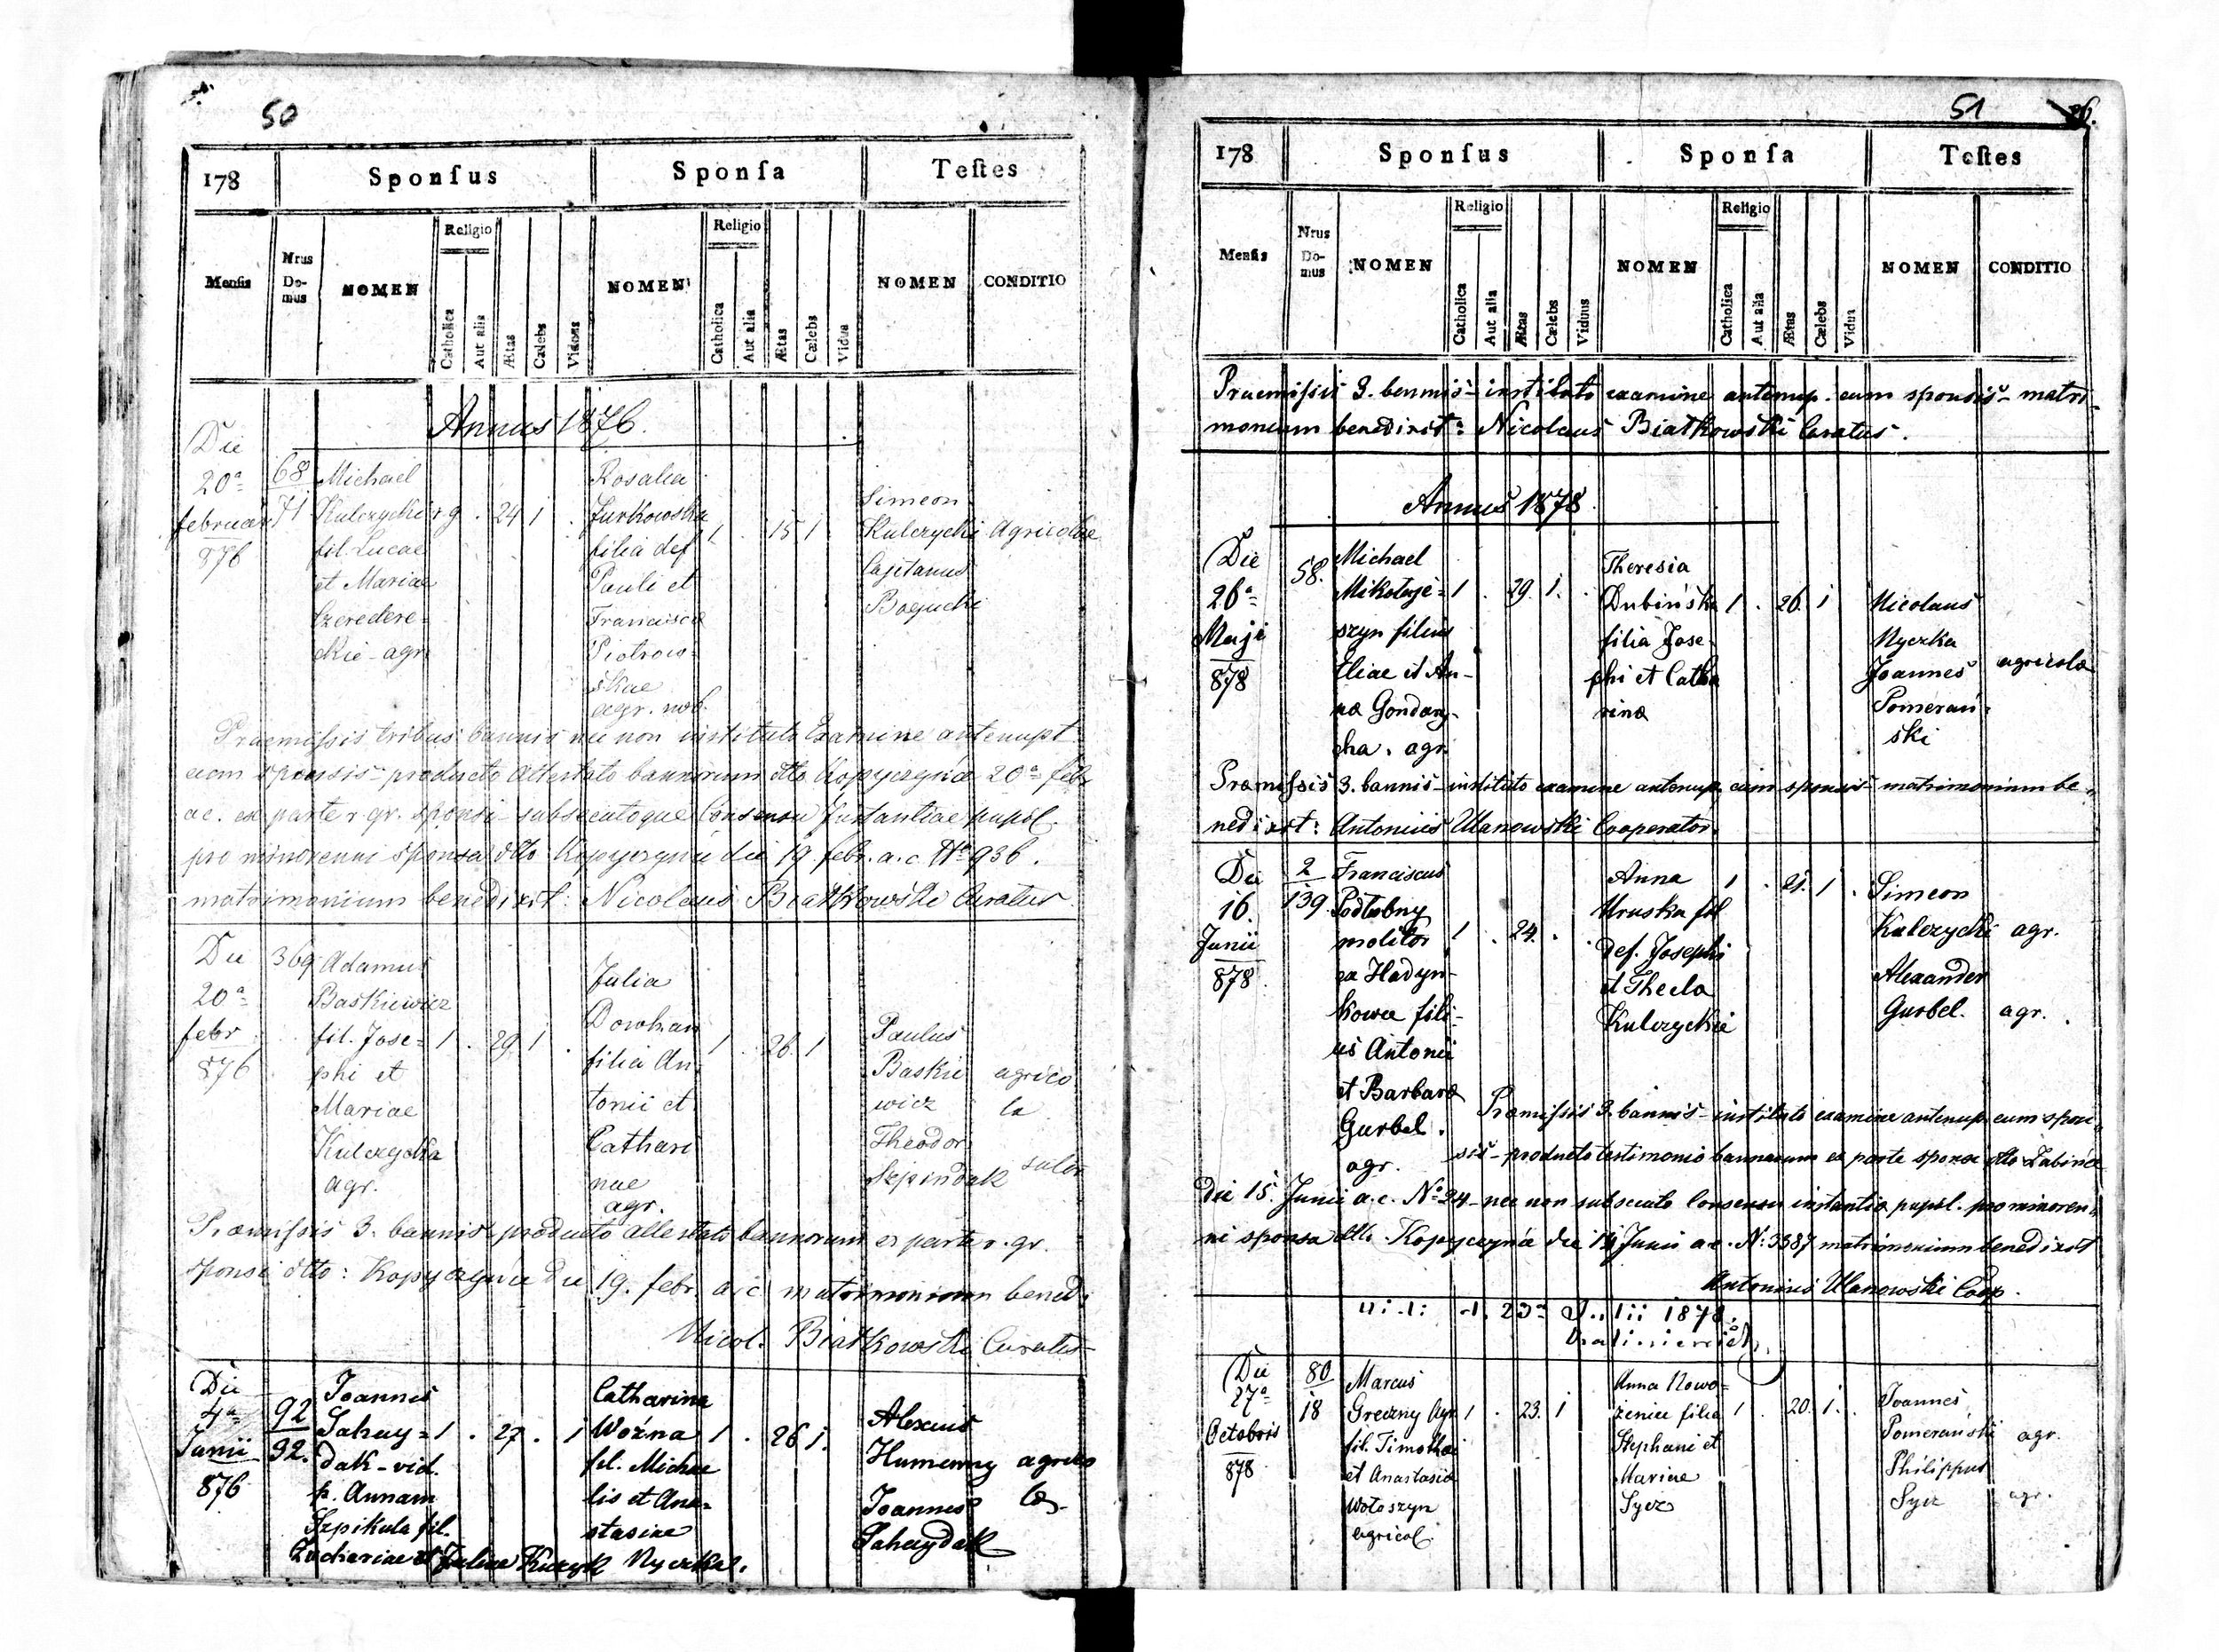 50
178
Sponſus
Sponſa
Teſtes
Menſis
Nrus Domus
NOMEN
Religio
Catholica
Aut alia
Ætas
Cælebs
Viduus
NOMEN
Religio
Catholica
Aut alia
Ætas
Cælebs
Vidua
NOMEN
CONDITIO
Annus 1876.
Die
20a
februar
876
68
71
Michael
Kulczycki r g . 24 1 .
fil. Lucae
et Mariae
Czeredere-
ckie - agr.
Rosalia
Jurkowska
filia def
Pauli et
Francisca
Piotrow-
skae
agr. nob.
1 . 15 1
Simeon
Kulczycki Agricolae
Cajetanus
Bogucki
Praemissis tribus bannis nec non instituto Examine antenupt
cum sponsis - producto Attestato bannorum dtto Kopyczyńce 20a febr
a c. ex parte r gr. sponsi - subsecutoque Consensu Instantiae pupil.
pro minorenni sponsa dtto Kopyczyńce die 19. febr. a. c. No 936.
matrimonium benedixit: Nicolaus Białkowski Curatus
Die
20a
febr
876
369
Adamus
Baskiewicz
fil. Jose- 1 . 29 1 .
phi et
Mariae
Kulczycka
agr.
Julia
Dowhan
filia An
tonii et
Cathari
nae
agr.
1 . 26. 1
Paulus
Baskie agrico
wicz la
Theodor
Szpindak sutor
Praemissis 3. bannis producto attestato bannorum ex parte r. gr.
sponsi dtto: Kopyczyńce die 19. febr. a. c. matrimonium benedi
Nicol. Białkowski Curatus
Die
4a
Junii
876
92
92.
Joannes
Sahay- 1 . 27 . 1
dak - vid.
p. Annam
Szpikula fil.
Zachariae et Juliae Kuczyk
Catharina
Woźna 1 . 26 1.
fil. Michae
lis et Ana-
stasiae
Nyczka.
Alexius
Humenny agrico
Joannes lae
Sahaydak
51
26.
178
Sponſus
Sponſa
Teſtes
Menſis
Nrus Domus
NOMEN
Religio
Catholica
Aut alia
Ætas
Cælebs
Viduus
NOMEN
Religio
Catholica
Aut alia
Ætas
Cælebs
Vidua
NOMEN
CONDITIO
Praemissis 3. bannis - instituto examine antenup. cum sponsis - matri-
monium benedixit: Nicolaus Białkowski Curatus.
Annus 1878
Die
26a
Maji
878
58.
Michael
Mikołaje- 1 . 29. 1. .
szyn filius
Eliae et An-
na Gondzy-
cha. agr.
Theresia
Dubińska 1 . 26. 1
filia Jose-
phi et Catha
rina
Nicolaus
Nyczka
Joannes agricola
Pomerań-
ski
Praemissis 3. bannis - instituto examine antenup. cum sponsis - matrimonium be-
nedixit: Antonius Ulanowski Cooperator.
Die
16.
Junii
878.
2
139
Franciscus
Podłubny
molitor 1 . 24. .
ex Hadyn-
kowce fili-
us Antonii
et Barbara
Gurbel.
agr.
Anna 1 . 21. 1 .
Hruska fil
def. Josephi
et Thecla
Kulczyckie
Simeon
Kulczycki agr.
Alexander
Gurbel. agr.
Praemissis 3. bannis - instituto examine antenup. cum spon-
sis - producto testimonio bannorum ex parte sponsi dtto Zabińce
die 15. Junii a. c. No 24 - nec non subsecuto Consensu instantia pupil. pro minoren-
ni sponsa dtto Kopyczyńce die 14 Junii a. c. N: 3387 matrimonium benedixit
Antonius Ulanowski Coop.
23a Julii 1878.
Die
27a
Octobris
878
80
18
Marcus
Greczny Agr 1 . 23. 1
fil. Timothei
et Anastasia
Wołoszyn
agricol.
Anna Nowo-
zeniec filia 1 . 20. 1.
Stephani et
Mariae
Sycz
Joannes
Pomerański agr.
Philippus
Sycz agr.